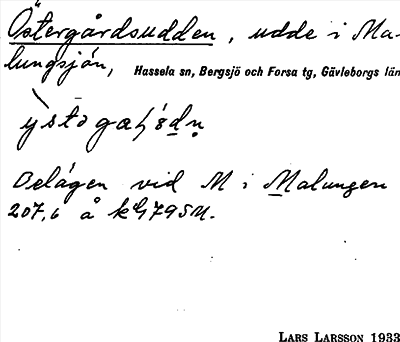 Östergårdsudden, udde i Ma-
lungsjön, Hassela sn, Bergsjö och Forsa tg, Gävleborgs län
Belägen vid M i Malungen
207,6 å kbl 79 SM.
LARS LARSSON 1933